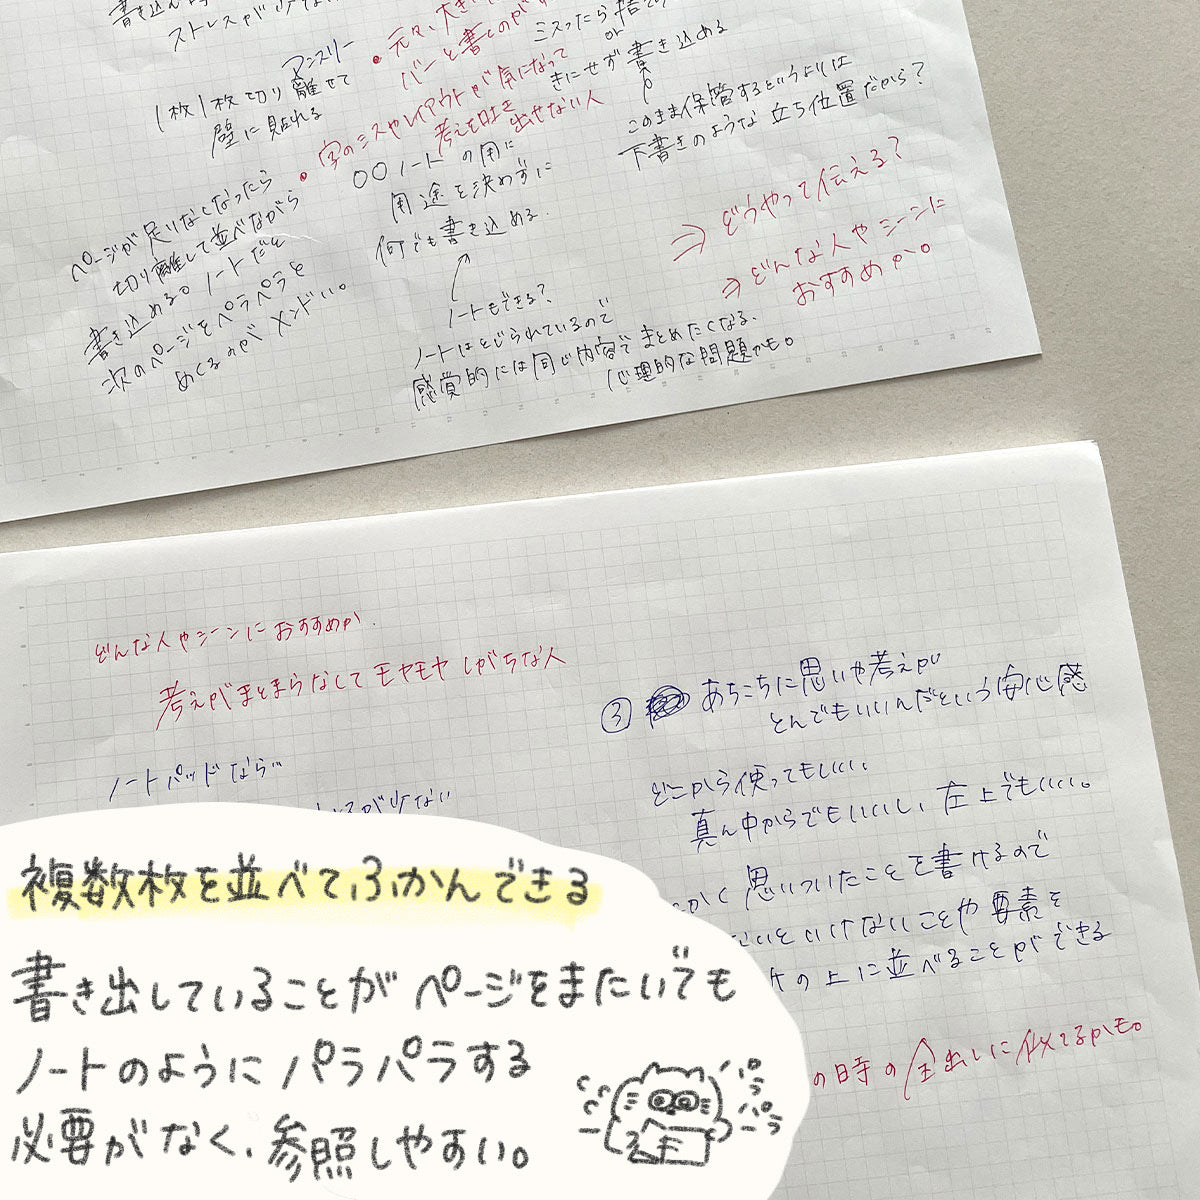 書き込ん
ストレスが少ない
マンスリー
1枚1枚切り離せて
壁に貼れる
ページが足りなくなったら
切り離して並べながら
書き込める。ノートだと
次のページをペラペラと
めくるのがメンドい。
・元々、大きい
バーと書くのが
・字のミスやレイアウトが気になって
考えを吐き出せない人
〇〇ノートの用に
用途を決めずに
何でも書き込める。
ノートもできる?
ノートはとじられているので
感覚的には同じ内容でまとめたくなる、
心理的な問題かも。
ミスったら捨て
or
きにせず書き込める
このまま保管するというよりは
下書きのような立ち位置だから?
⇒どうやって伝える?
⇒どんな人やシーンに
おすすめか。
どんな人やシーンにおすすめか
考えがまとまらなくてモヤモヤしがちな人
ノートパッドなら…
が少ない
③ あちこちに思いや考えが
とんでもいいんだという安心感
どこから使ってもいい、
真ん中からでもいいし、左上でもいい。
かく思いついたことを書けるので
ないといけないことや要素を
の上に並べることができる
の時の全出しに似てるかも。
複数枚を並べて、ふかんできる
書き出していることがページをまたいでも
ノートのようにパラパラする
必要がなく、参照しやすい。
パラ
パラ